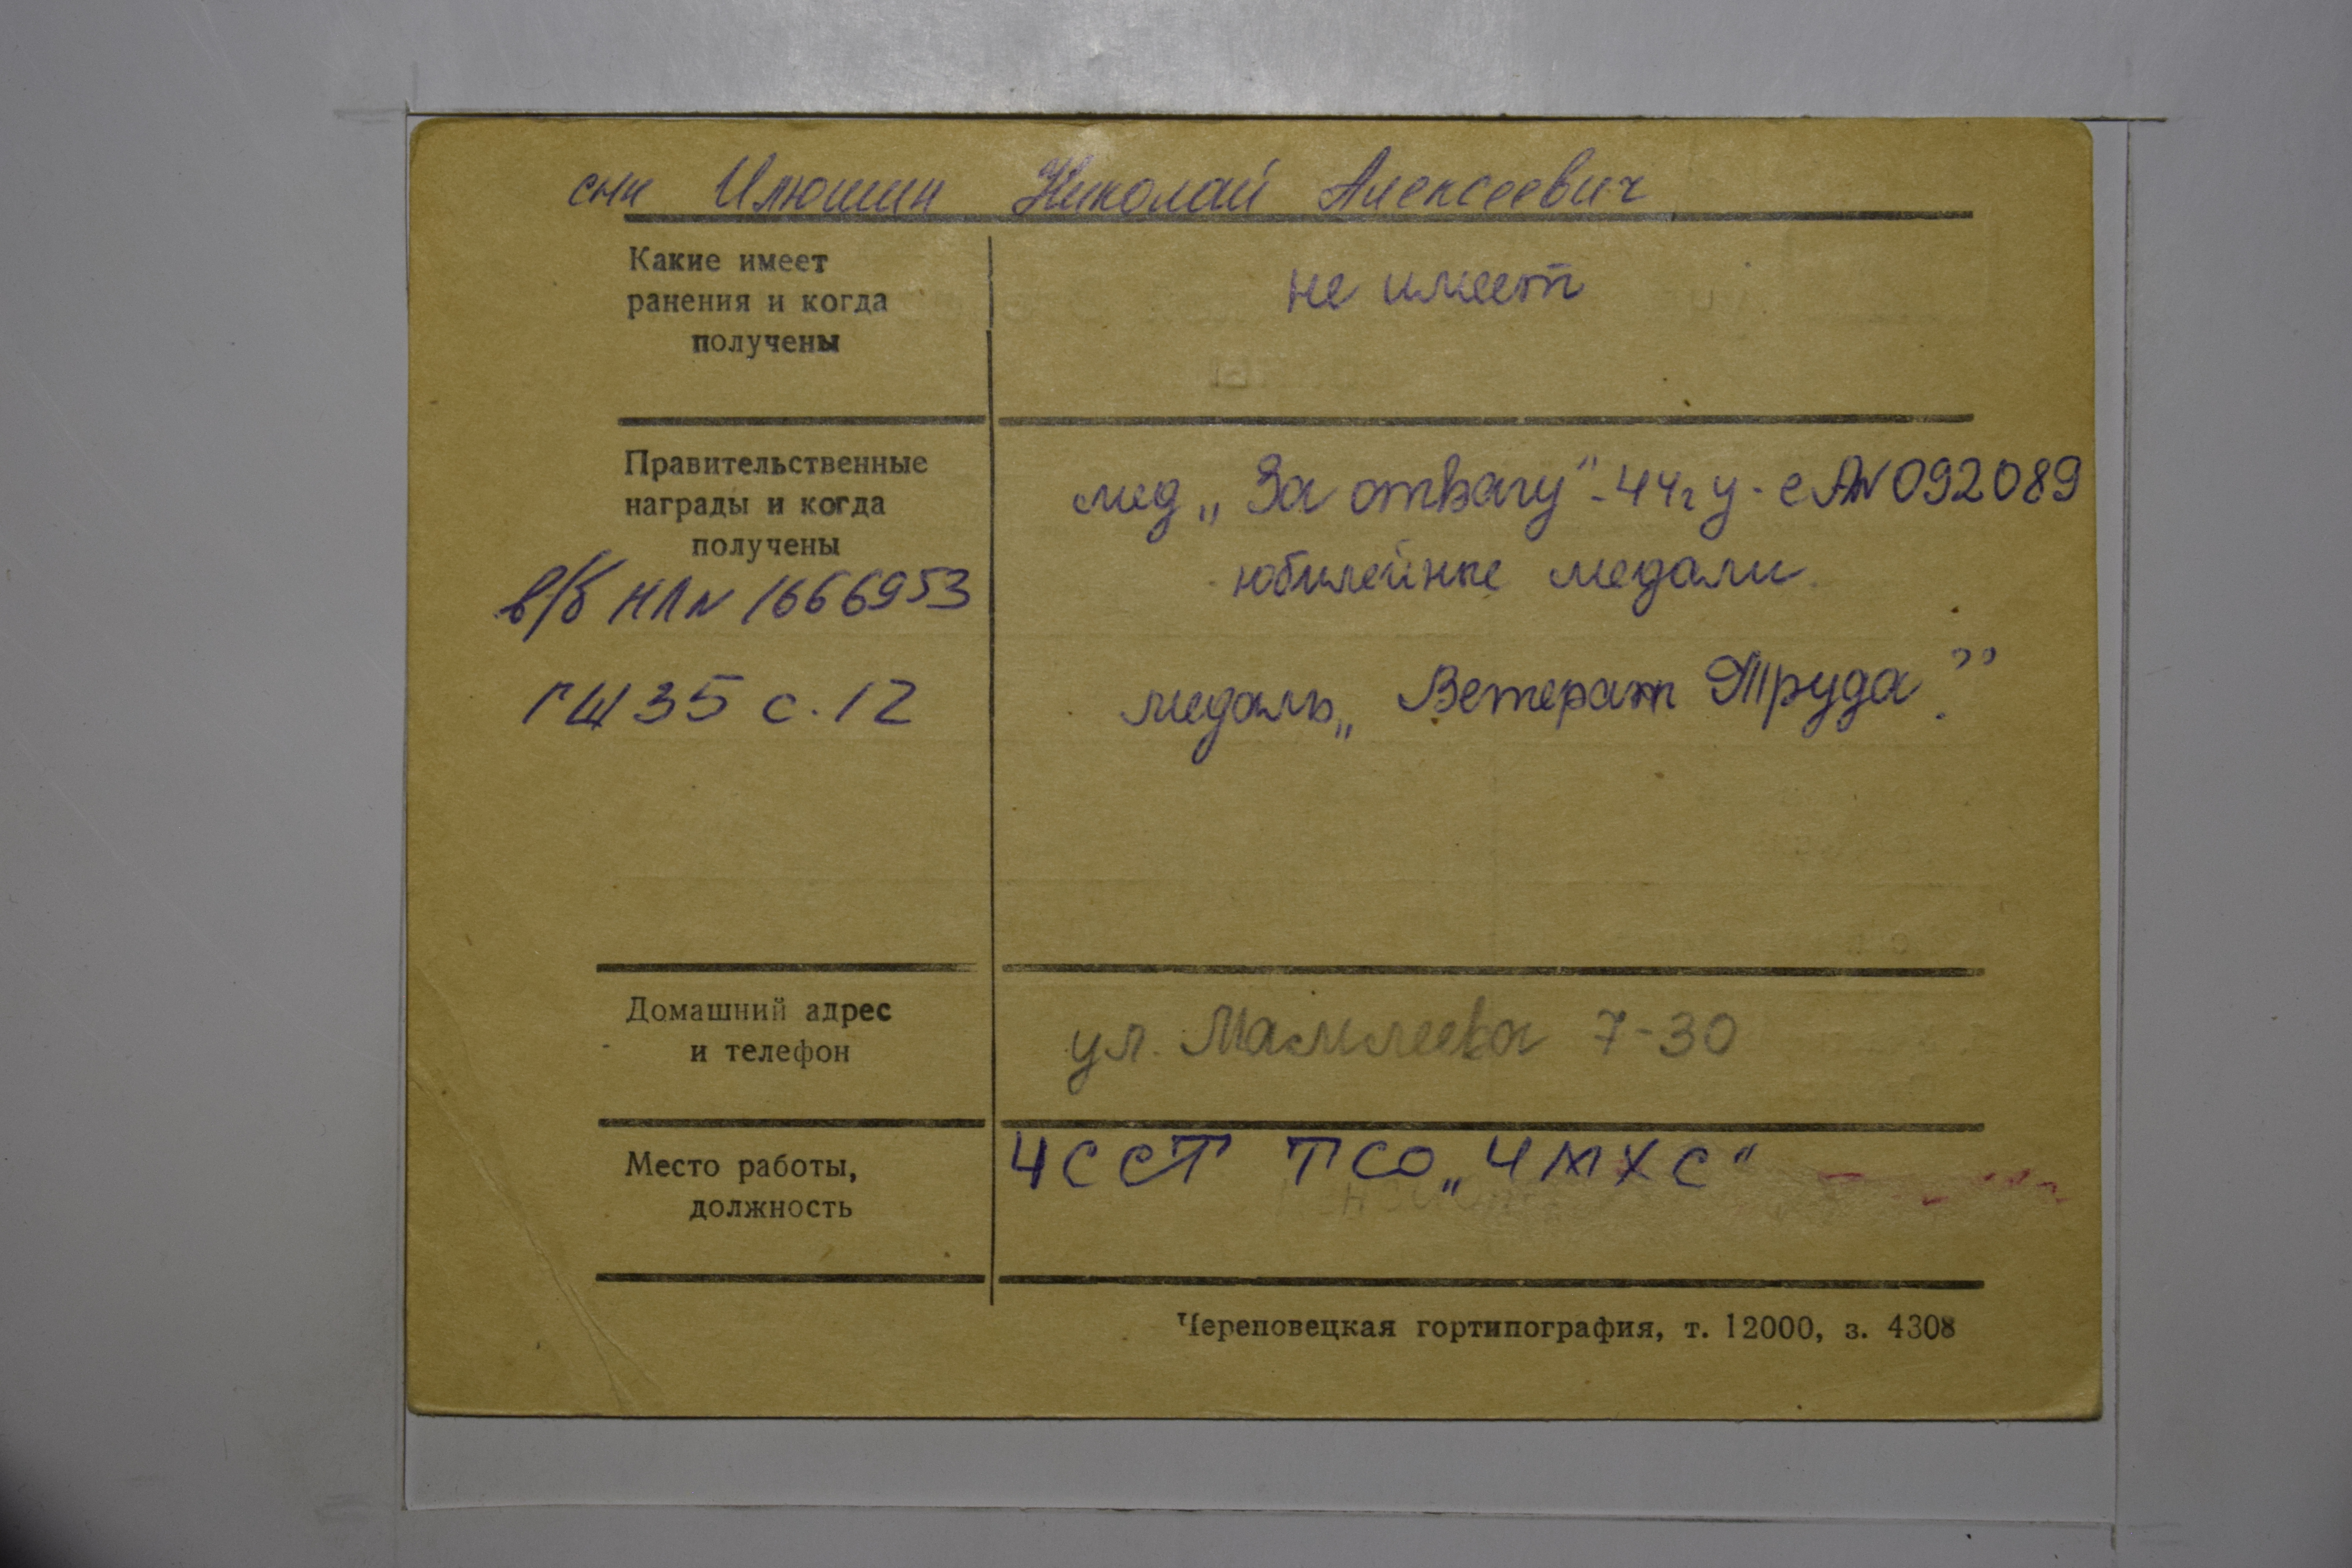 сын Илюшин Николай Алексеевич
Какие имеет
ранения и когда
получены
не имеет
Правительственные
награды и когда
получены
в/б НЛ № 1666953
ГЩ 35 с. 12
мед „За отвагу" - 44г у - е А№ 092089
юбилейные медали
медаль „Ветеран Труда."
Домашний адрес
и телефон
ул. Мамлеева 7-30
Место работы,
должность
ЧССТ ТСО „ЧМХС"
Череповецкая гортипография, т. 12000, з. 4308